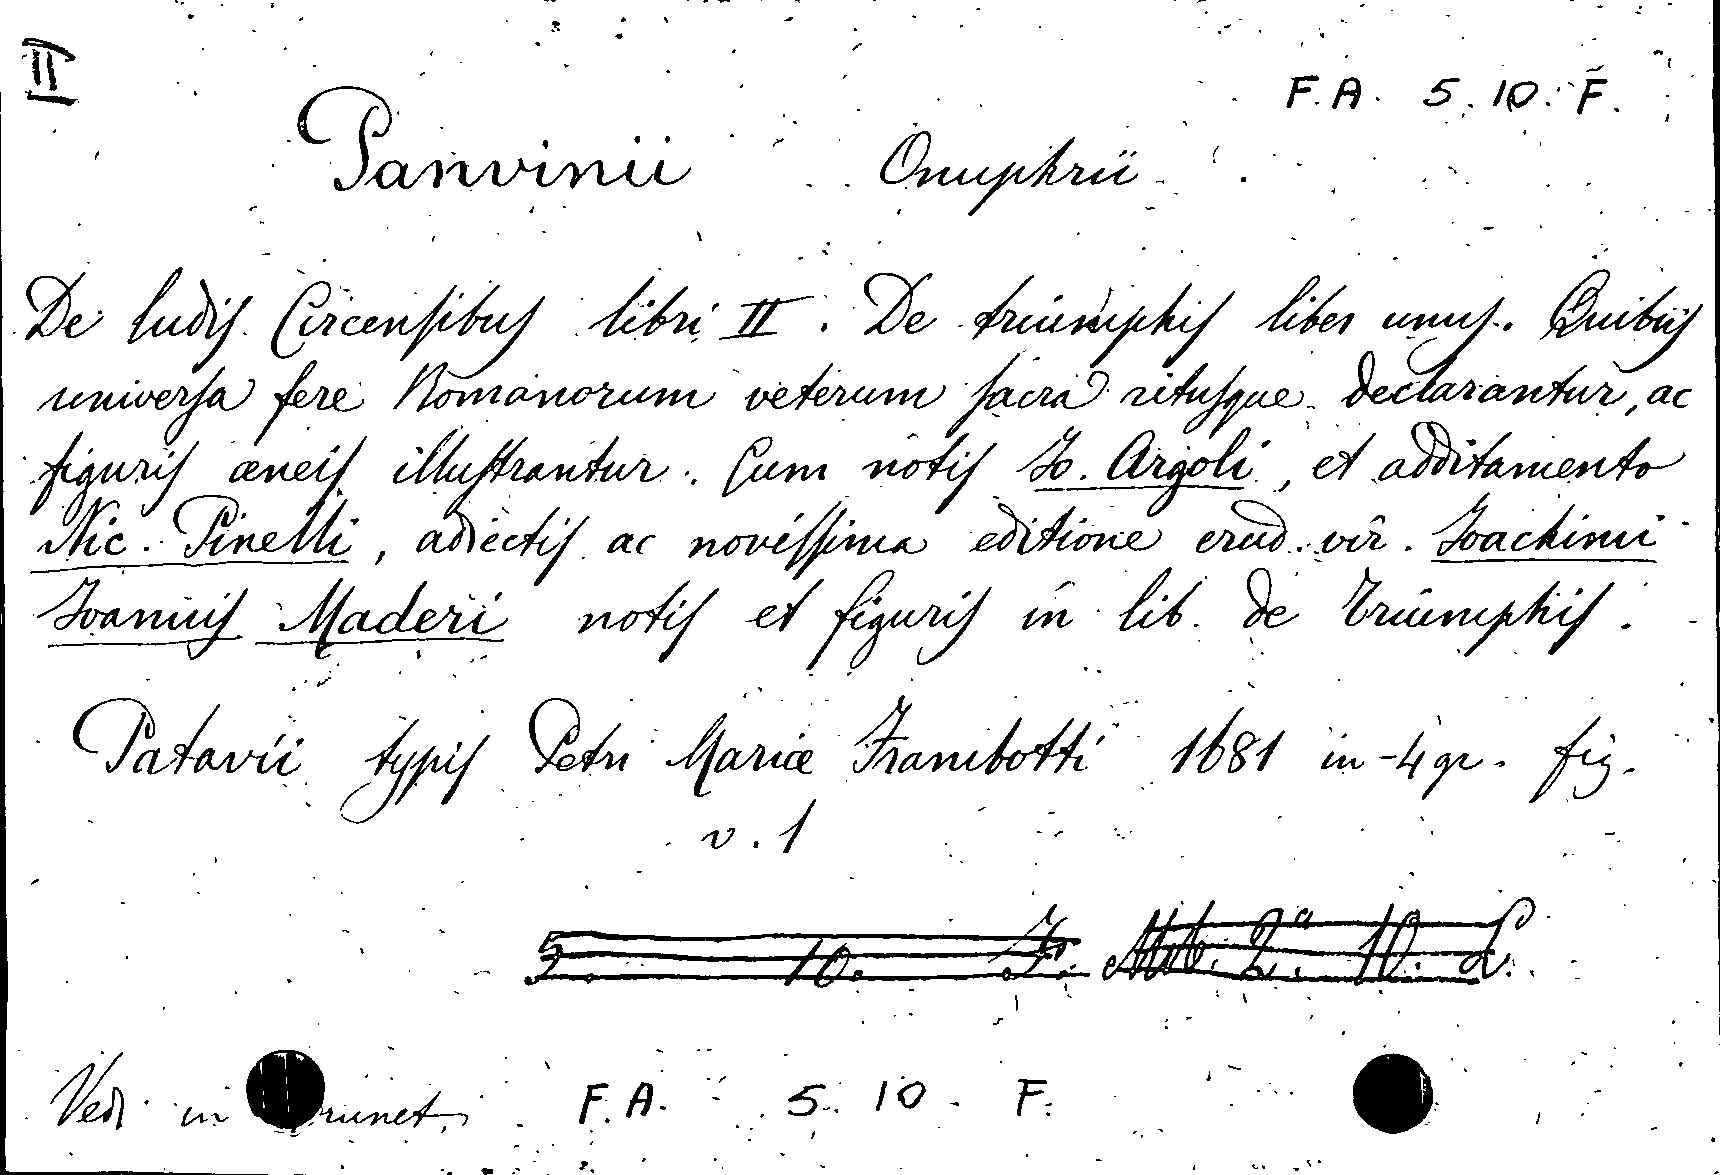 II
F. A. 5. 10. F.
Panvinii Onuphrii
De ludis Circensibus libri II. De triumphis liber unus. Quibus
universa fere Romanorum veterum sacra ritusque declarantur, ac
figuris æneis illustrantur. Cum notis Jo. Argoli, et additamento
Nic. Pinelli, adiectis ac novissima editione erud. vir. Joachimi
Joannis Maderi notis et figuris in lib. de Triumphis.
Patavii typis Petri Mariæ Frambotti 1681 in-4 gr. fig.
v. 1
5. 10. F. 2ª. 10.
Vedi in runet. F. A. 5. 10. F.